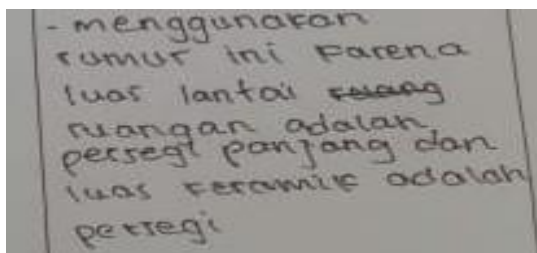 - menggunakan
rumus ini karena
luas lantai ruang
ruangan adalah
persegi panjang dan
luas keramik adalah
persegi